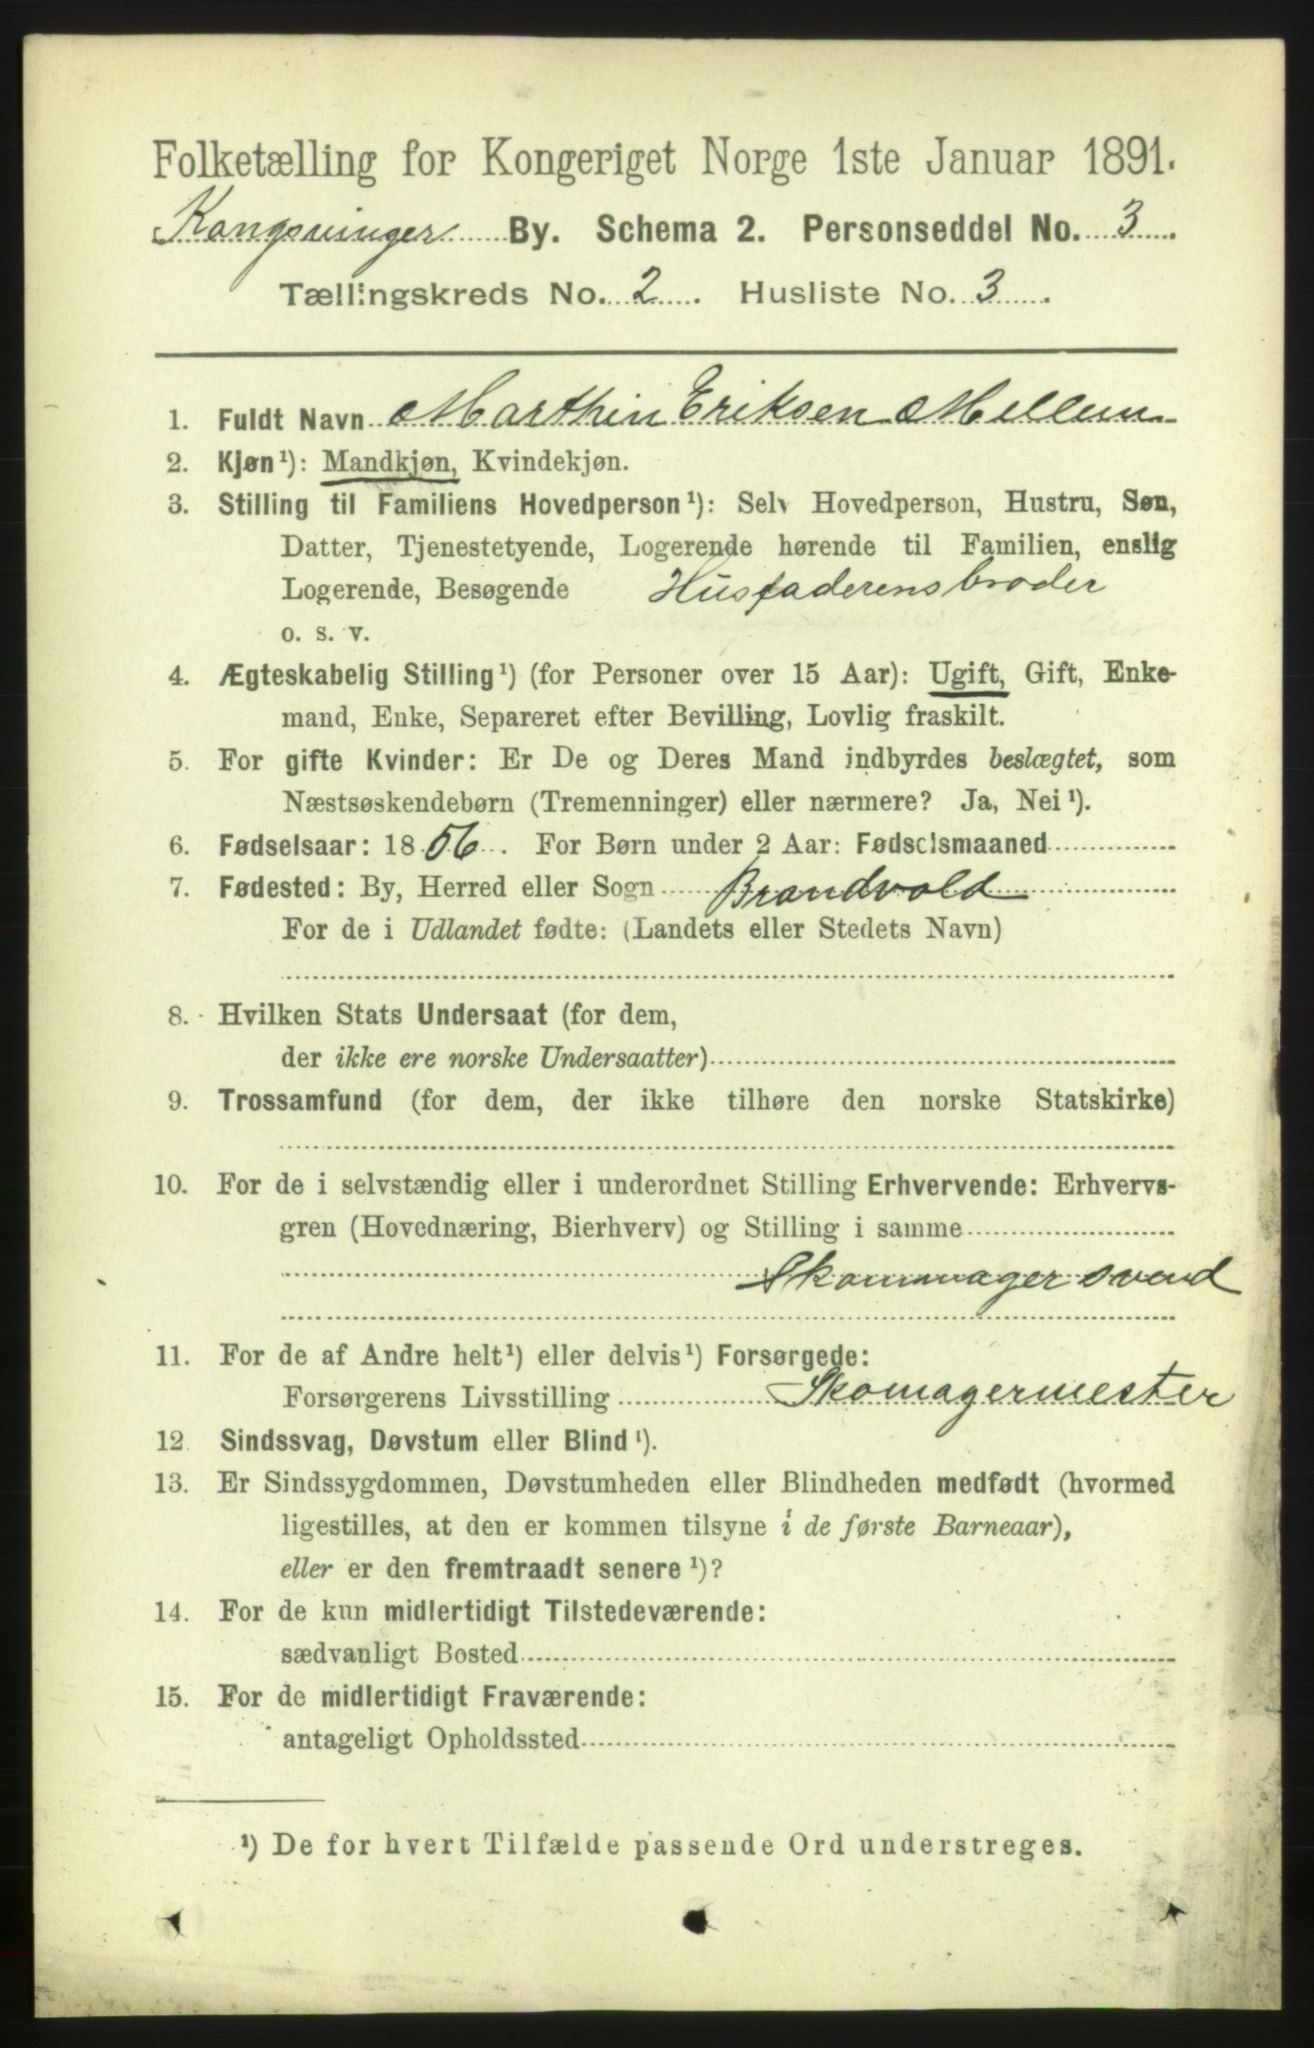 Folketælling for Kongeriget Norge 1ste Januar 1891.
Kongsvinger By. Schema 2. Personseddel No. 3
Tællingskreds No. 2. Husliste No. 3.
1. Fuldt Navn Marthin Eriksen Mellum
2. Kjøn¹): Mandkjøn, Kvindekjøn.
3. Stilling til Familiens Hovedperson¹): Selv Hovedperson, Hustru, Søn,
Datter, Tjenestetyende, Logerende hørende til Familien, enslig
Logerende, Besøgende Husfaderens broder
o. s. v.
4. Ægteskabelig Stilling¹) (for Personer over 15 Aar): Ugift, Gift, Enke-
mand, Enke, Separeret efter Bevilling, Lovlig fraskilt.
5. For gifte Kvinder: Er De og Deres Mand indbyrdes beslægtet, som
Næstsøskendebørn (Tremenninger) eller nærmere? Ja, Nei¹).
6. Fødselsaar: 1856. For Børn under 2 Aar: Fødselsmaaned
7. Fødested: By, Herred eller Sogn Brandvold
For de i Udlandet fødte: (Landets eller Stedets Navn)
8. Hvilken Stats Undersaat (for dem,
der ikke ere norske Undersaatter)
9. Trossamfund (for dem, der ikke tilhøre den norske Statskirke)
10. For de i selvstændig eller i underordnet Stilling Erhvervende: Erhvervs-
gren (Hovednæring, Bierhverv) og Stilling i samme
Skommager svend
11. For de af Andre helt¹) eller delvis¹) Forsørgede:
Forsørgerens Livsstilling Skomagermester
12. Sindssvag, Døvstum eller Blind¹).
13. Er Sindssygdommen, Døvstumheden eller Blindheden medfødt (hvormed
ligestilles, at den er kommen tilsyne i de første Barneaar),
eller er den fremtraadt senere¹)?
14. For de kun midlertidigt Tilstedeværende:
sædvanligt Bosted
15. For de midlertidigt Fraværende:
antageligt Opholdssted
¹) De for hvert Tilfælde passende Ord understreges.